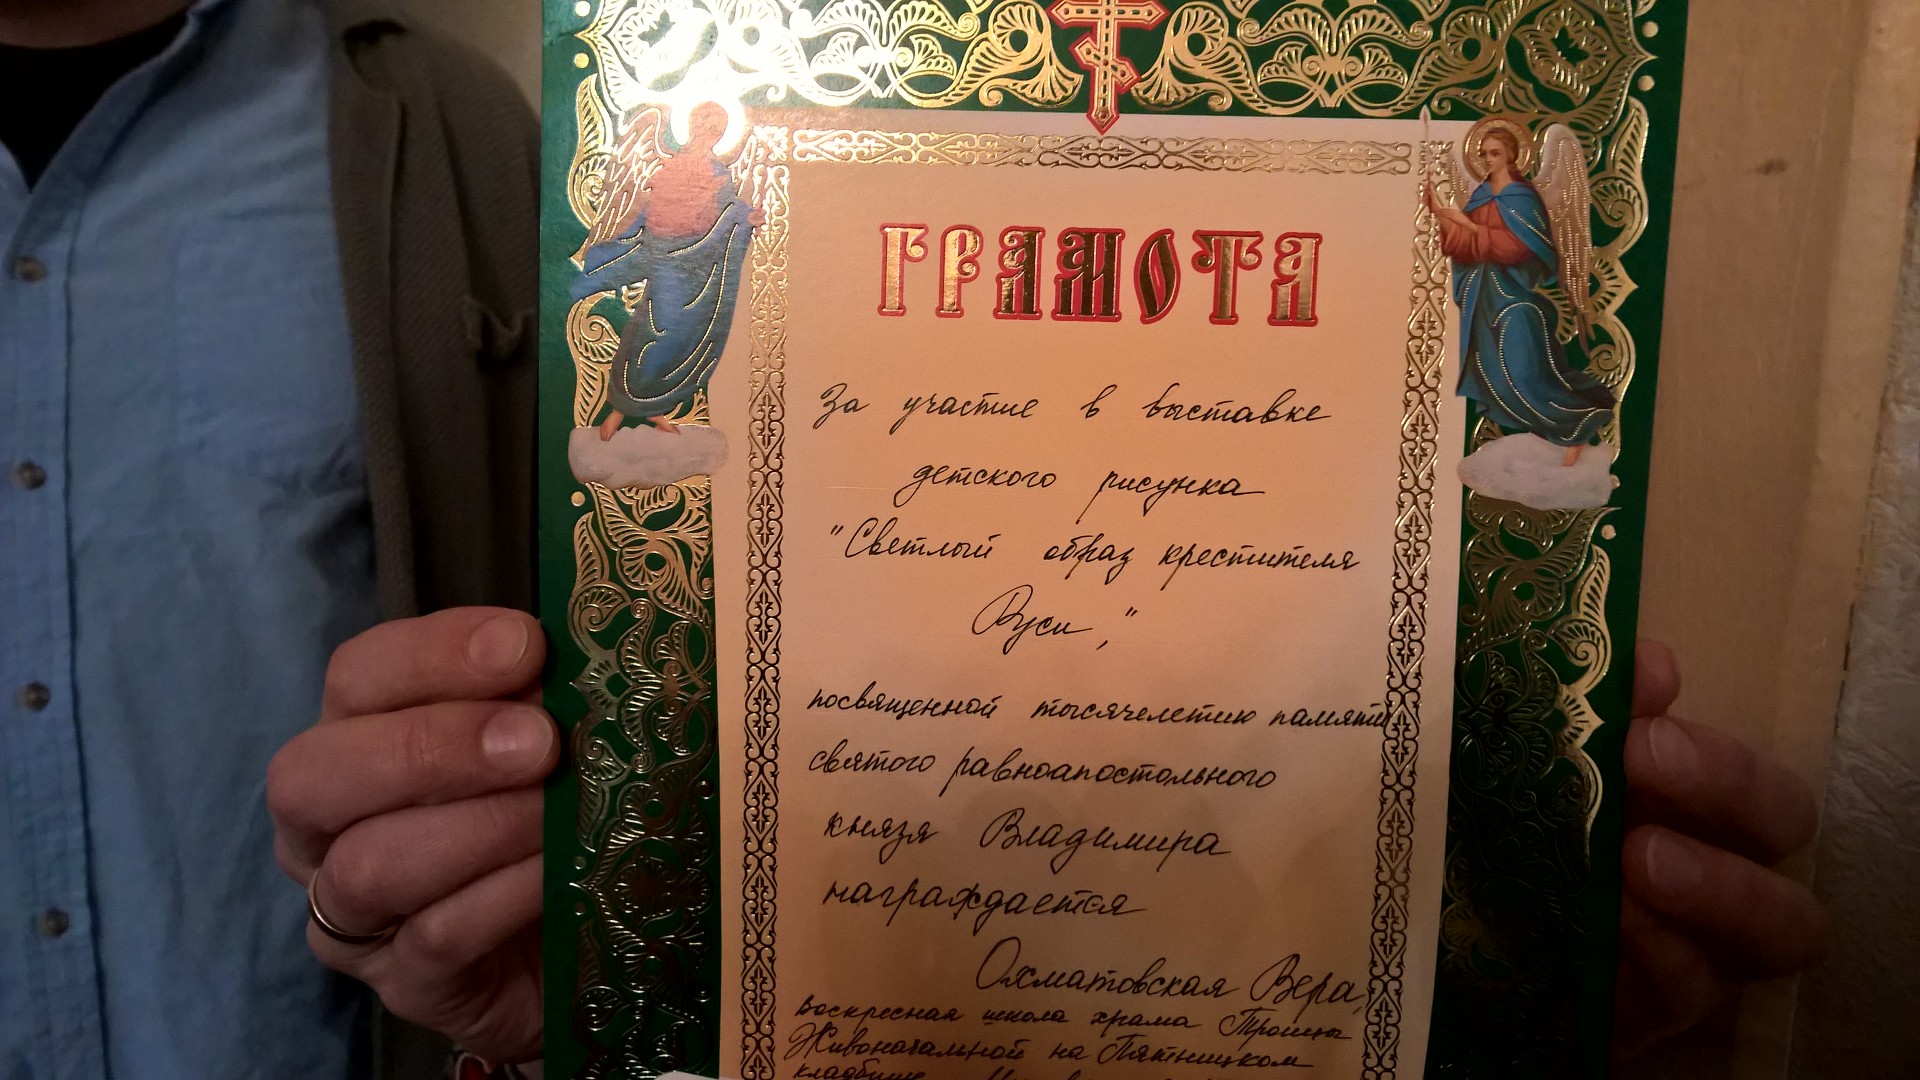 ГРАМОТА
За участие в выставке
детского рисунка
"Светлый образ крестителя
Руси,"
посвященной тысячелетию памяти
святого равноапостольного
князя Владимира
награждается
Охматовская Вера,
воскресная школа храма Троицы
Живоначальной на Пятницком
кладбище